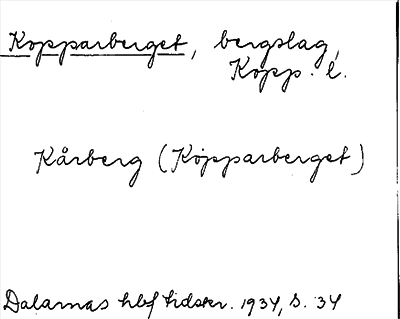 Kopparberget, bergslag,
Kopp. l.
Kårberg (Kopparberget)
Dalarnas hbf tidskr. 1934, s. 34